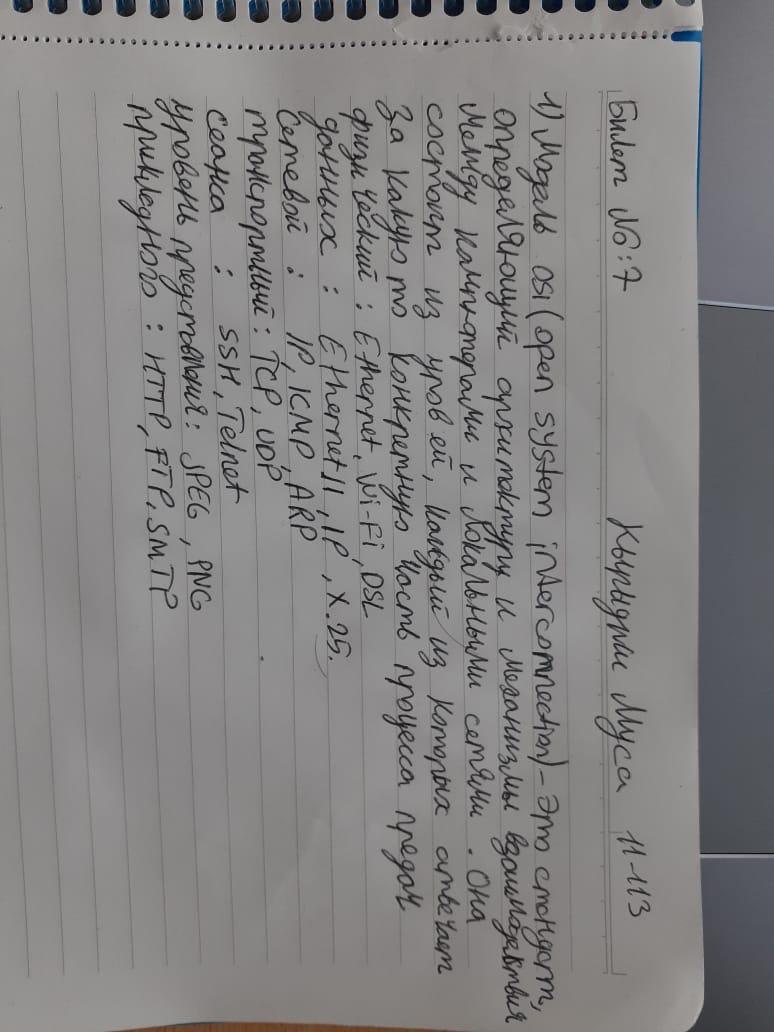 Билет №:7 Кырыджи Муса 11-113
1) Модель OSI (open system interconnection) – это стандарт,
определяющий архитектуру и механизмы взаимодействия
между кампютерами и локальными сетями. Она
состоит из уровей, каждый из которых отвечает
за какую то конкретную часть процесса предач
физический : Ethernet, Wi-Fi, DSL
данных : Ethernet II, IP, X.25.
сетевой : IP, ICMP, ARP
транспортный : TCP, UDP
сеанса : SSH, Telnet
уровень представления : JPEG, PNG
прикладного : HTTP, FTP, SMTP